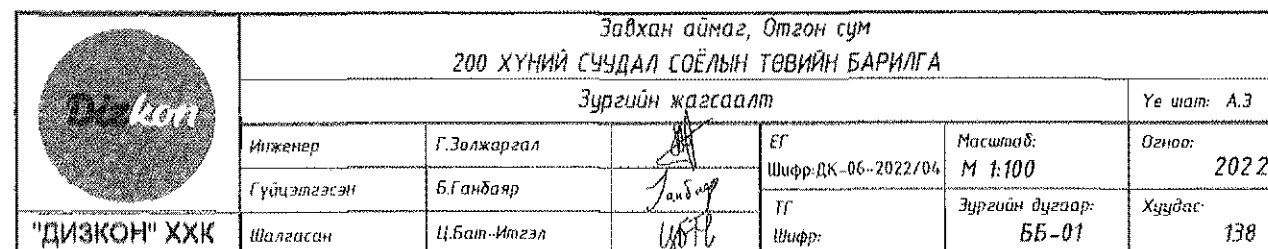 Завхан аймаг, Отгон сум
200 ХҮНИЙ СУУДАЛ СОЁЛЫН ТӨВИЙН БАРИЛГА
Зургийн жагсаалт
Үе шат: А.З
Dizkon
Инженер
Г.Золжаргал
ЕГ
Шифр:ДК-06-2022/04
Масштаб:
М 1:100
Огноо:
2022
Гүйцэтгэсэн
Б.Ганбаяр
ТГ
Шифр:
Зургийн дугаар:
ББ-01
Хуудас:
138
"ДИЗКОН" ХХК
Шалгасан
Ц.Бат-Итгэл